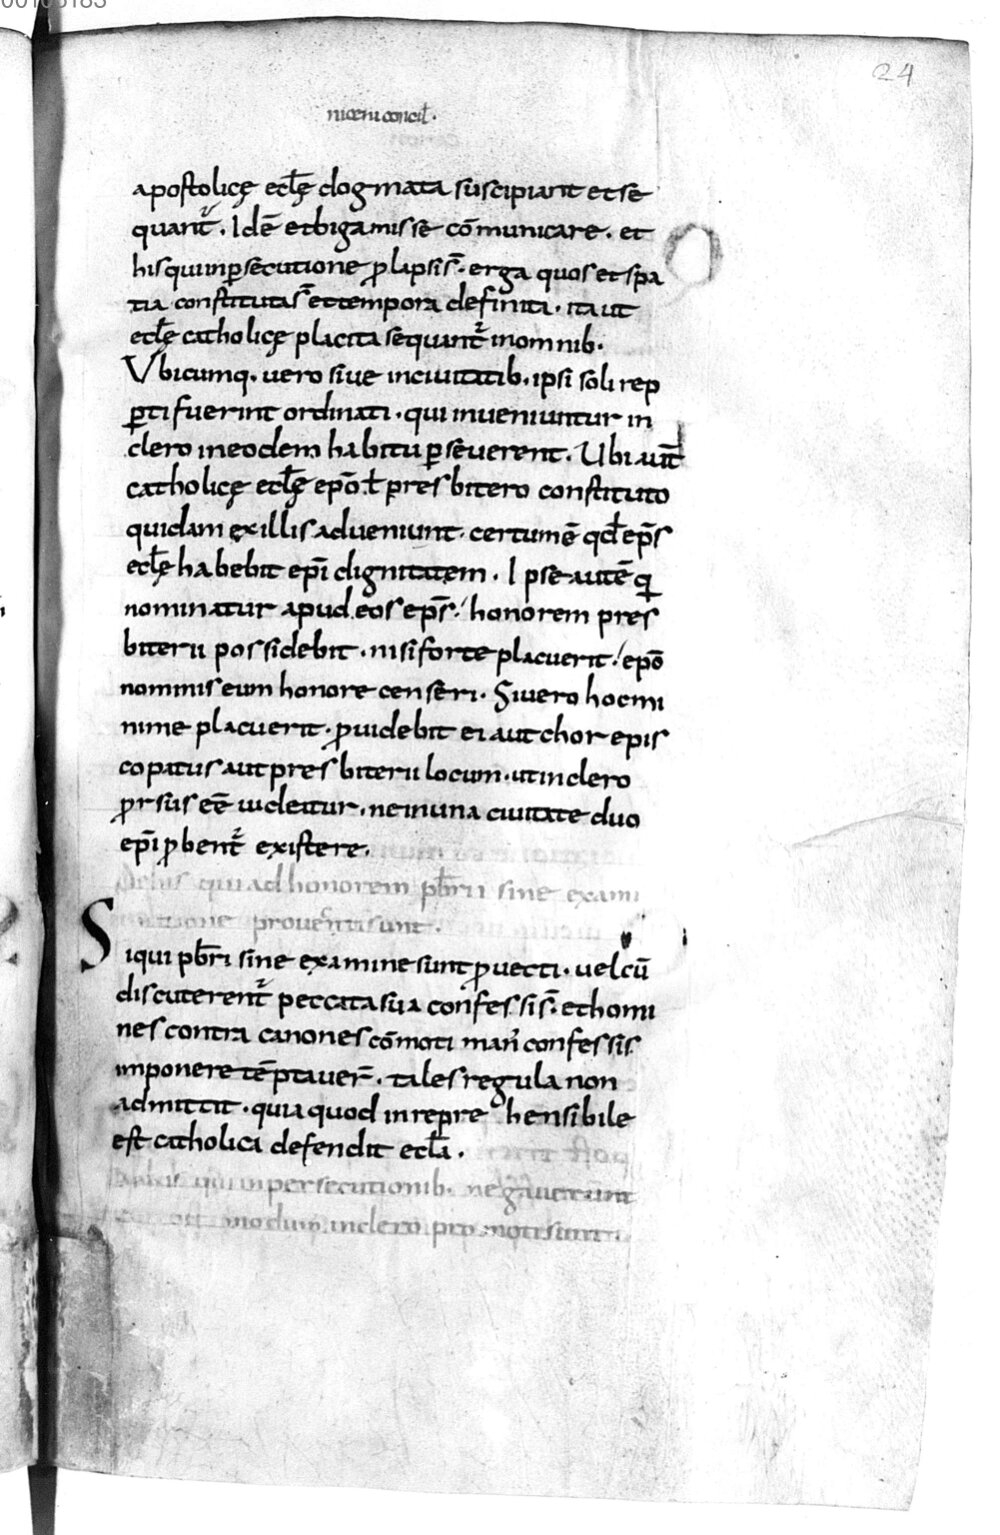 24
niceni concil̄.
apostolicę eclę̄ dogmata suscipiant et se
quant᷑. Idē et bigamis sē cōmunicare. et
his qui in p̱secutione ꝓlapsi s̄. erga quos et spa
tia constituta s̄ et tempora definita. ita ut
eclę̄ catholicę placita sequant᷑ in omnib.
Ubicumq. vero sive in civitatib. ipsi soli rep
p̱ti fuerint ordinati. qui inveniuntur in
clero in eodem habitu p̱severent. Ubi aut̄
catholicę eclę̄ epō. ł presbitero constituto
quidam ex illis adveniunt. certum ē qđ ep̄s
eclę̄ habebit epī dignitatem. Ipse autē q
nominatur apud eos ep̄s. honorem pres
biterii possidebit. nisi forte placuerit. epō
nominis eum honore censeri. Si vero hoc mi
nime placuerit. ꝓvidebit ei aut chorepis
copatus aut presbiterii locum. ut in clero
ꝓrsus eē videatur. ne in una civitate duo
epī ꝓbent᷑ existere.
De his qui ad honorem pb̄rii sine exami
natione provecti sunt.
Siqui pb̄ri sine examine sunt ꝓvecti. vel cū
discuterent᷑ peccata sua confessi s̄. et homi
nes contra canones cōmoti man̄ confessis
imponere tēptaver̄. tales regula non
admittit. quia quod inreprehensibile
est catholica defendit ecla̅.
De his qui in persecutionib. negaverunt
modum in clero promoti sunt